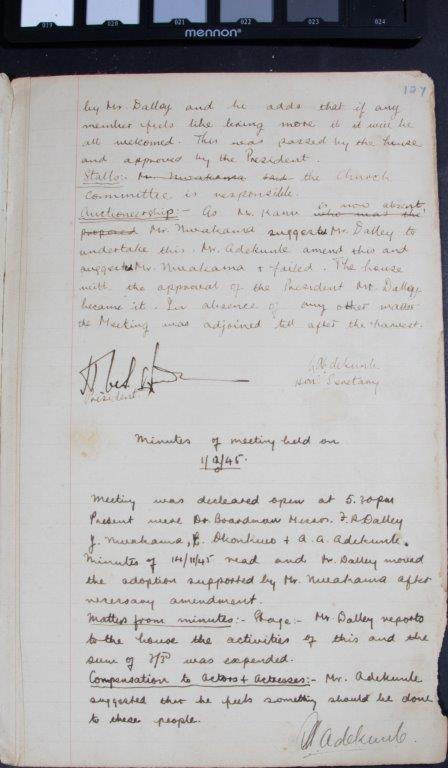 019 020 021 022 023 024
mennon
127
by Mr. Dalley and he adds that if any
member feels like being more it will be
all welcomed. This was passed by the house
and approved by the President.
Stalls:- Mr. Nwakama said the Church
Committee is responsible.
Auctioneership:- As Mr. Kanu who was the is now absent,
proposed Mr. Nwakama suggests Mr. Dalley to
undertake this. Mr. Adekunle amend this and
suggest Mr. Nwakama & failed. The house
with the approval of the President Mr. Dalley
became it. In absence of any other matter
the Meeting was adjoined till after the harvest.
President
Adekunle
Hon. Secretary
Minutes of meeting held on
1/12/45.
Meeting was decleared open at 5.30pm
Present were Dr. Boardman Messrs. F. A. Dalley
J. Nwakama, & A. A. Adekunle.
Minutes of 14/11/45 read and Mr. Dalley moved
the adoption supported by Mr. Nwakama after
necessary amendment.
Matter from minutes:- Stage:- Mr. Dalley reports
to the house the activities of this and the
sum of was expended.
Compensation to actors & actresses:- Mr. Adekunle
suggested that he feels something should be done
to these people.
Adekunle.